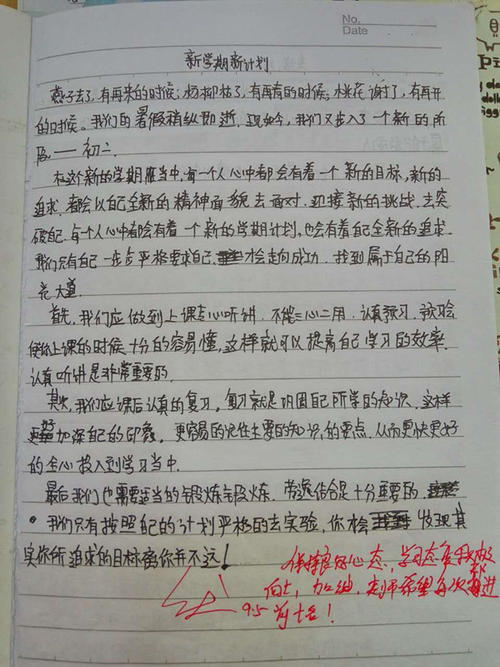 No.
Date
新学期新计划
燕子去了,有再来的时候;杨柳枯了,有再青的时候;桃花谢了,有再开
的时候。我们的暑假稍纵即逝.现如今,我们又步入了一个新的阶
段——初二.
在这个新的学期应当中,每一个人心中都会有着一个新的目标,新的
追求.都会以自己全新的精神面貌去面对.迎接新的挑战.去突
破自己.每个人心中都会有着一个新的学期计划,也会有着自己全新的追求.
我们只有自己一步步严格要求自己,才会走向成功.找到属于自己的阳
光大道.
首先,我们应做到上课专心听讲.不能三心二用.认真预习.预习会
使你上课的时候十分的容易懂,这样就可以提高自己学习的效率.
认真听讲是非常重要的.
其次,我们应课后认真的复习,复习就是巩固自己所学的知识.这样
好加深自己的印象.更容易的记住主要的知识的要点.从而更快更好
的全心投入到学习当中.
最后我们也需要适当的锻炼锻炼.劳逸结合是十分重要的.
我们只有按照自己的计划严格的去实验.你才会发现其
实你所追求的目标离你并不远!
保持良好心态,学习态度积极
向上,加油,老师希望每次都进
前十名!
9.5